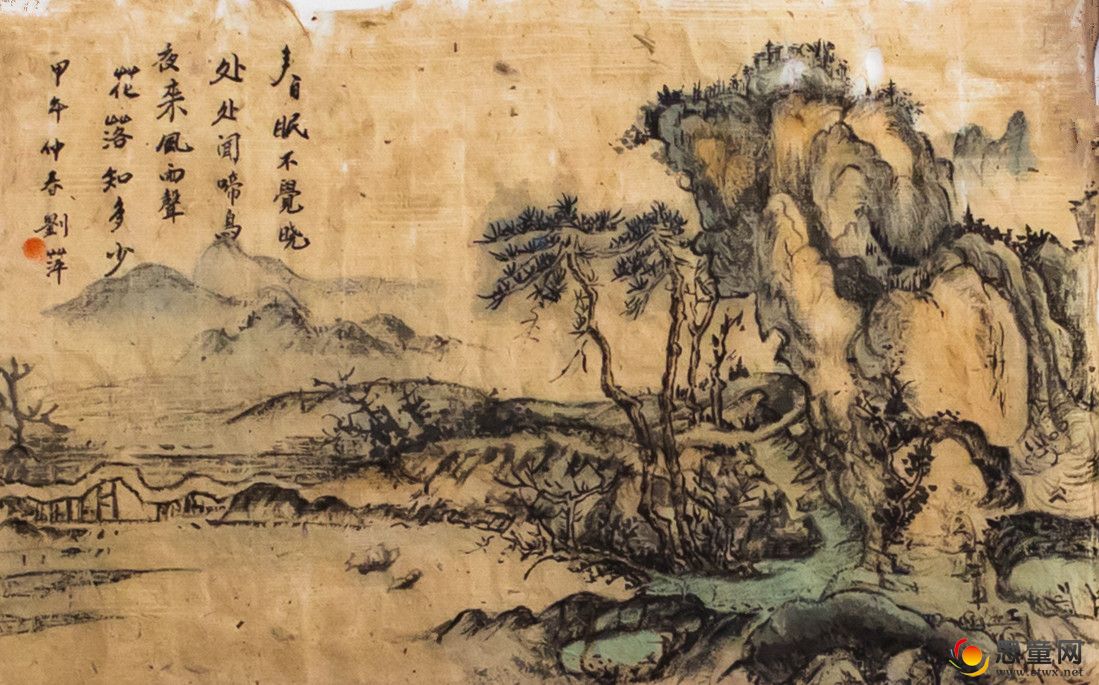 春眠不覺晓
处处闻啼鸟
夜来風雨聲
花落知多少
甲午仲春 劉萍
www.etwx.net